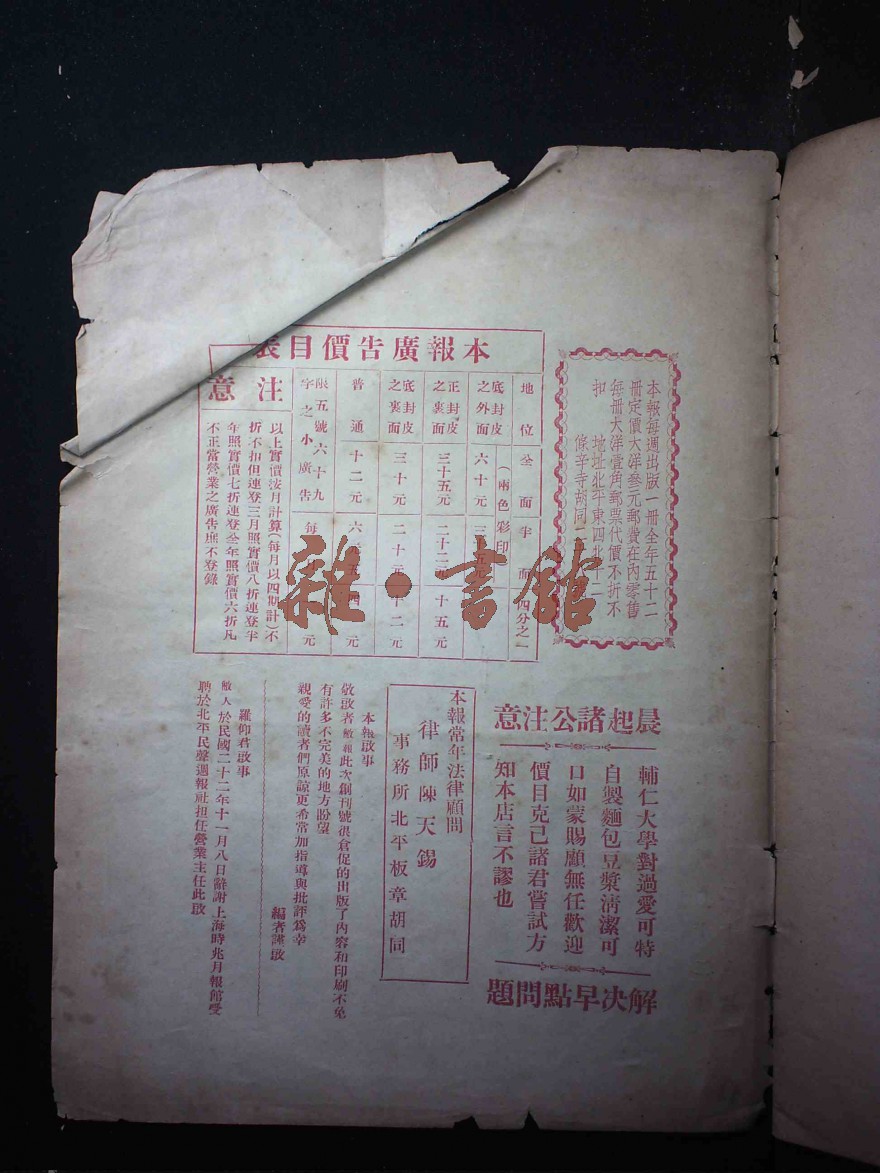 本報每週出版一冊全年五十二
冊定價大洋叄元郵費在內零售
每冊大洋壹角郵票代價不折不
扣 地址北平東四北十二
條辛寺胡同一
本報廣告價目表
地位 全面 半面 四分之一
底封皮之外面 六十元 (兩色彩印)
正封皮之裏面 三十五元 二十二元 十五元
底封皮之裏面 三十元 二十元 十二元
普通 十二元 六元 四元
限五號六十九字之小廣告 每 元
注意
以上實價按月計算(每月以四期計)不
折不扣但連登三月照實價八折連登半
年照實價七折連登全年照實價六折凡
不正當營業之廣告庶不登錄
雜·書館
晨起諸公注意
輔仁大學對過愛可特
自製麵包豆漿清潔可
口如蒙賜顧無任歡迎
價目克己諸君嘗試方
知本店言不謬也
解決早點問題
本報常年法律顧問
律師陳天錫
事務所北平板章胡同
本報啟事
敬啟者敝報此次創刊號很倉促的出版了內容和印刷不免
有許多不完美的地方盼望
親愛的讀者們原諒更希常加指導與批評為幸
編者謹啟
羅仰君啟事
敝人於民國二十二年十一月八日辭謝上海時兆月報館受
聘於北平民聲週報社担任營業主任此啟